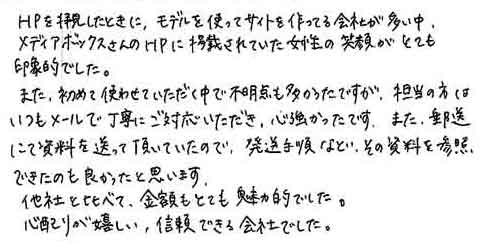 HPを拝見したときに，モデルを使ってサイトを作ってる会社が多い中，
メディアボックスさんのHPに掲載されていた女性の笑顔がとても
印象的でした。
また，初めて使わせていただく中で不明点も多かったですが，担当の方は
いつもメールで丁寧にご対応いただき，心強かったです．また，郵送
にて資料を送って頂いていたので，発送手順など，その資料を参照
できたのも良かったと思います．
他社と比べて，金額もとても魅力的でした。
心配りが嬉しい，信頼できる会社でした。